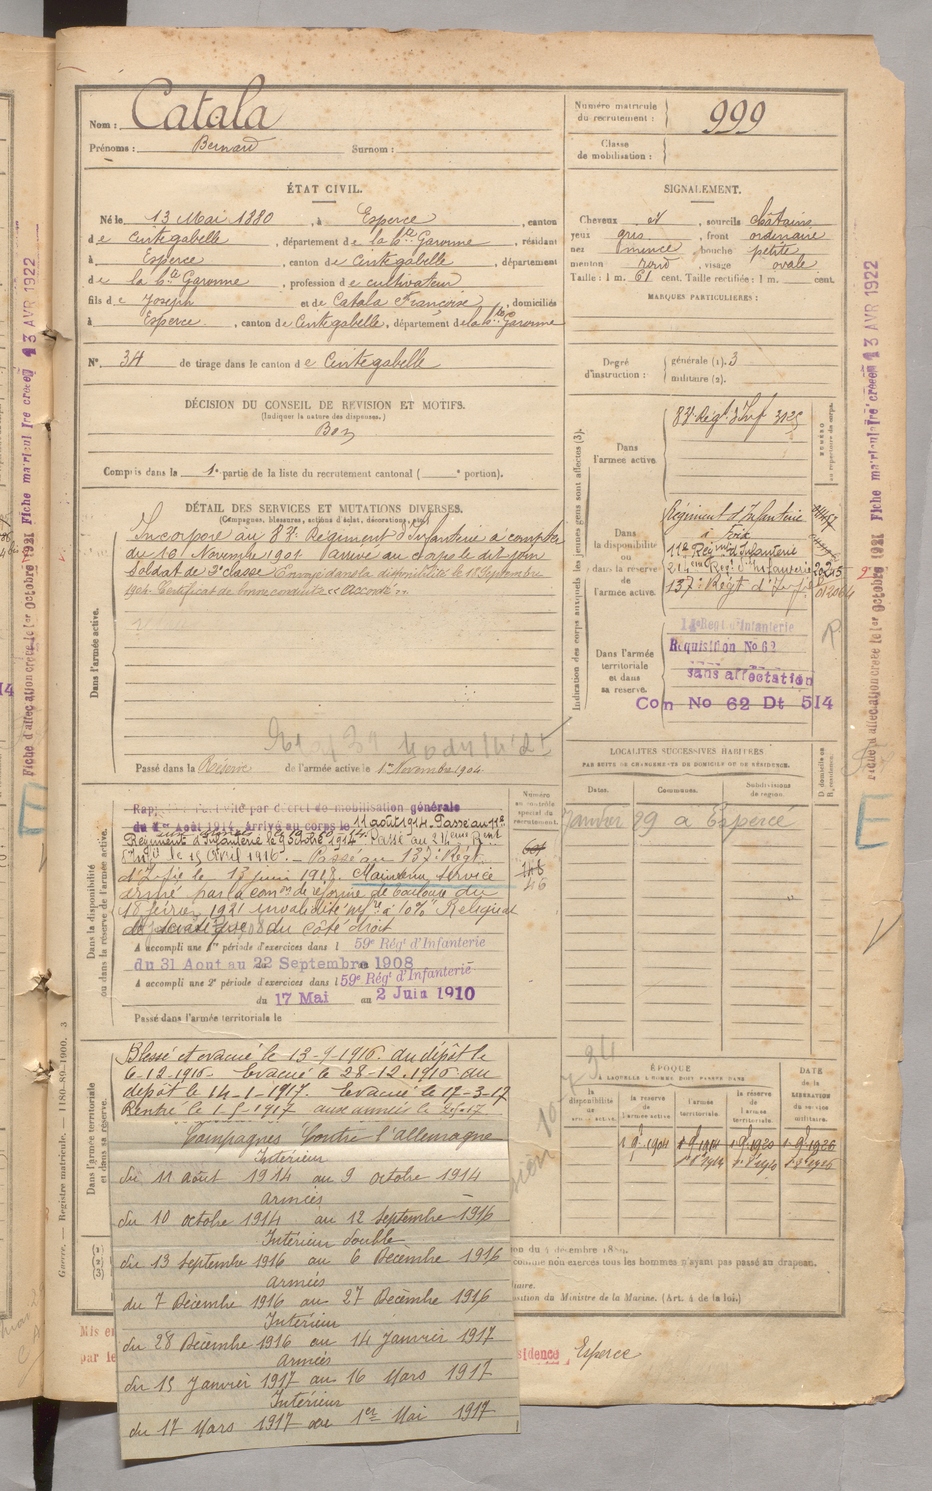 Nom : Catala
Prénoms : Bernard Surnom :
Numéro matricule
du recrutement : 999
Classe
de mobilisation :
ÉTAT CIVIL.
Né le 13 Mai 1880, à Esperce, canton
de Cintegabelle, département de la Hte Garonne, résidant
à Esperce, canton de Cintegabelle, département
de la Hte Garonne, profession de cultivateur
fils de Joseph et de Catala Françoise, domiciliés
à Esperce, canton de Cintegabelle, département de la Hte Garonne
N° 34 de tirage dans le canton de Cintegabelle
DÉCISION DU CONSEIL DE REVISION ET MOTIFS.
(Indiquer la nature des dispenses.)
Bon
Compris dans la 1e partie de la liste du recrutement cantonal ( e portion).
SIGNALEMENT.
Cheveux et, sourcils châtains
yeux gris, front ordinaire
nez mince, bouche petite
menton rond, visage ovale
Taille : 1 m. 61 cent. Taille rectifiée : 1 m. cent.
MARQUES PARTICULIÈRES :
Degré
d'instruction :
générale (1). 3
militaire (2).
DÉTAIL DES SERVICES ET MUTATIONS DIVERSES.
(Campagnes, blessures, actions d'éclat, décorations, etc.)
Dans l'armée active.
Incorporé au 83e Régiment d'Infanterie à compter
du 16 Novembre 1901 Arrivé au corps le dit jour
Soldat de 2e classe Envoyé dans la disponibilité le 18 Septembre
1904. Certificat de bonne conduite "Accordé".
Passé dans la Réserve de l'armée active le 1er Novembre 1904
Indication des corps auxquels les jeunes gens sont affectés (3).
Dans
l'armée active.
83e Régt d'Inf 3125
NUMÉRO
au répertoire du corps.
Dans
la disponibilité
ou
dans la réserve
de l'armée
active.
Régiment d'Infanterie
à Foix
11e Régimt d'Infanterie
214eme Regt d'Infanterie
137e Régt d'Inf
Dans l'armée
territoriale
et dans
sa réserve.
Regt d'Infanterie
Réquisition No 62
sans affectation
Con No 62 Dt 514
LOCALITÉS SUCCESSIVES HABITÉES
PAR SUITE DE CHANGEMENTS DE DOMICILE OU DE RÉSIDENCE.
Dates. Communes. Subdivisions
de région.
D domicile ou
Janvier 29 à Esperce
Dans la disponibilité
ou dans la réserve de l'armée active.
Numéro
au contrôle
spécial du
recrutement.
46
Rappelé à l'activité par décret de mobilisation générale
du 1er Août 1914, arrivé au corps le 11 août 1914. Passé au 11e
Régiment d'Infanterie le 9 Octobre 1914. Passé au 214eme Rgnt
d'Infie le 15 Avril 1916. – Passé au 137e Régt
d'Infie le 13 juin 1918. Maintenu service
armé par la comon de réforme de Toulouse du
18 février 1921 invalidité infre à 10% Reliquat
de sciatique du côté droit
A accompli une 1re période d'exercices dans l 59e Régt d'Infanterie
du 31 Aout au 22 Septembre 1908
A accompli une 2e période d'exercices dans l 59e Régt d'Infanterie
du 17 Mai au 2 Juin 1910
Passé dans l'armée territoriale le
Dans l'armée territoriale
et dans sa réserve.
Blessé et évacué le 13-9-1916. du dépôt le
6-12-1916. Evacué le 28-12-1916 du
dépôt le 14-1-1917. Evacué le 17-3-17
Rentré le 1-5-1917 aux armées le
Campagnes Contre l'Allemagne
Intérieur
du 11 août 1914 au 9 octobre 1914
Armées
du 10 octobre 1914 au 12 Septembre 1916
Intérieur double
du 13 septembre 1916 au 6 Décembre 1916
Armées
du 7 Décembre 1916 au 27 Decembre 1916
Intérieur
du 28 Décembre 1916 au 14 Janvier 1917
Armées
du 15 Janvier 1917 au 16 Mars 1917
Intérieur
du 17 Mars 1917 au 1er Mai 1917
ÉPOQUE
À LAQUELLE L'HOMME DOIT PASSER DANS
la
disponibilité
de
la réserve
de
l'armée active
l'armée
territoriale.
la réserve
de
l'armée
territoriale.
DATE
de la
LIBÉRATION
du service
militaire.
1 9bre 1904 1 9bre 1914 1 9bre 1920 1 9bre 1926
on du 4 décembre 1889.
comme non exercés tous les hommes n'ayant pas passé au drapeau.
iaire.
sition du Ministre de la Marine. (Art. 4 de la loi.)
Mis en
par le
sidence Esperce
Guerre. — Registre matricule. — 1180-89-1900. 3
Fiche d'affectation créée le 1er octobre 1921 Fiche matriculaire créée 13 AVR 1922
Fiche d'affectation créée le 1er octobre 1921 Fiche matriculaire créée 13 AVR 1922
E
E
R